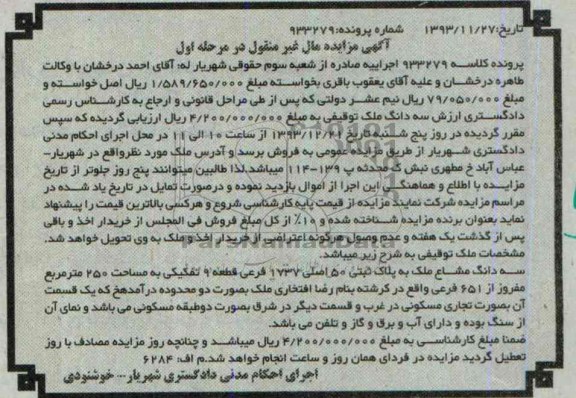 تاریخ:۱۳۹۳/۱۱/۲۷ شماره پرونده:۹۳۳۲۷۹
آگهی مزایده مال غیر منقول در مرحله اول
پرونده کلاسه ۹۳۳۲۷۹ اجراییه صادره از شعبه سوم حقوقی شهریار له: آقای احمد درخشان با وکالت
طاهره درخشان و علیه آقای یعقوب باقری بخواسته مبلغ ۱/۵۸۹/۶۵۰/۰۰۰ ریال اصل خواسته و
مبلغ ۷۹/۰۵۰/۰۰۰ ریال نیم عشر دولتی که پس از طی مراحل قانونی و ارجاع به کارشناس رسمی
دادگستری ارزش سه دانگ ملک توقیفی به مبلغ ۴/۲۰۰/۰۰۰/۰۰۰ ریال ارزیابی گردیده که سپس
مقرر گردیده در روز پنج شنبه تاریخ ۱۳۹۳/۱۲/۲۱ از ساعت ۱۰ الی ۱۱ در محل اجرای احکام مدنی
دادگستری شهریار از طریق مزایده عمومی به فروش برسد و آدرس ملک مورد نظرواقع در شهریار-
عباس آباد خ مطهری نبش ک محدثه پ ۱۳۹-۱۱۴ میباشد.لذا طالبین میتوانند پنج روز جلوتر از تاریخ
مزایده با اطلاع و هماهنگی این اجرا از اموال بازدید نموده و درصورت تمایل در تاریخ یاد شده در
مراسم مزایده شرکت نمایند مزایده از قیمت پایه کارشناسی شروع و هرکسی بالاترین قیمت را پیشنهاد
نماید بعنوان برنده مزایده شناخته شده و ۱۰٪ از کل مبلغ فروش فی المجلس از خریدار اخذ و باقی
پس از گذشت یک هفته و عدم وصول هرگونه اعتراضی از خریدار اخذ و ملک به وی تحویل خواهد شد.
مشخصات ملک توقیفی به شرح زیر میباشد.
سه دانگ مشاع ملک به پلاک ثبتی ۵۰ اصلی ۱۷۳۷ فرعی قطعه ۹ تفکیکی به مساحت ۲۵۰ مترمربع
مفروز از ۶۵۱ فرعی واقع در کرشته بنام رضا افتخاری ملک بصورت دو محدوده درآمدهک که یک قسمت
آن بصورت تجاری مسکونی در غرب و قسمت دیگر در شرق بصورت دوطبقه مسکونی می باشد و نمای آن
از سنگ بوده و دارای آب و برق و گاز و تلفن می باشد.
ضمنا مبلغ کارشناسی به مبلغ ۴/۲۰۰/۰۰۰/۰۰۰ ریال میباشد و چنانچه روز مزایده مصادف با روز
تعطیل گردید مزایده در فردای همان روز و ساعت انجام خواهد شد.م الف: ۶۲۸۴
اجرای احکام مدنی دادگستری شهریار-- خوشنودی